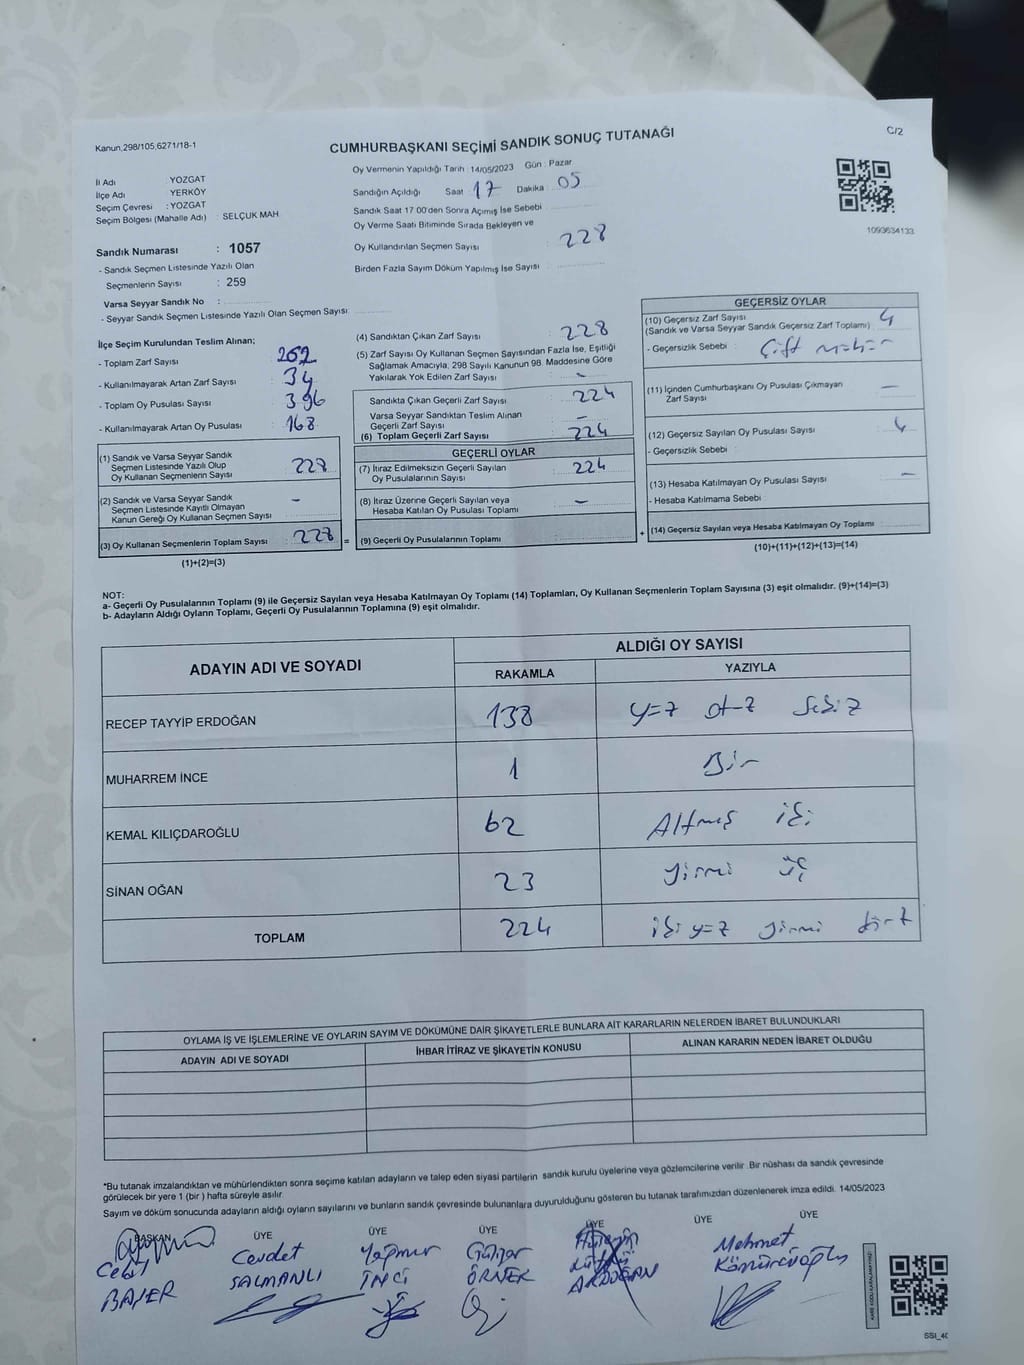 Kanun,298/105,6271/18-1
CUMHURBAŞKANI SEÇİMİ SANDIK SONUÇ TUTANAĞI
C/2
İl Adı YOZGAT
İlçe Adı YERKÖY
Seçim Çevresi : YOZGAT
Seçim Bölgesi (Mahalle Adı) : SELÇUK MAH.
Oy Vermenin Yapıldığı Tarih : 14/05/2023 Gün : Pazar
Sandığın Açıldığı Saat 17 Dakika : 05
Sandık Saat 17:00'den Sonra Açımış İse Sebebi
Oy Verme Saati Bitiminde Sırada Bekleyen ve
Oy Kullandırılan Seçmen Sayısı : 228
Birden Fazla Sayım Döküm Yapılmış İse Sayısı :
1093634133
Sandık Numarası : 1057
- Sandık Seçmen Listesinde Yazılı Olan
Seçmenlerin Sayısı : 259
Varsa Seyyar Sandık No :
- Seyyar Sandık Seçmen Listesinde Yazılı Olan Seçmen Sayısı
İlçe Seçim Kurulundan Teslim Alınan;
- Toplam Zarf Sayısı : 262
- Kullanılmayarak Artan Zarf Sayısı : 34
- Toplam Oy Pusulası Sayısı : 396
- Kullanılmayarak Artan Oy Pusulası : 168
(1) Sandık ve Varsa Seyyar Sandık
Seçmen Listesinde Yazılı Olup
Oy Kullanan Seçmenlerin Sayısı : 228
(2) Sandık ve Varsa Seyyar Sandık
Seçmen Listesinde Kayıtlı Olmayan
Kanun Gereği Oy Kullanan Seçmen Sayısı : -
(3) Oy Kullanan Seçmenlerin Toplam Sayısı : 228 =
(1)+(2)=(3)
(4) Sandıktan Çıkan Zarf Sayısı : 228
(5) Zarf Sayısı Oy Kullanan Seçmen Sayısından Fazla İse, Eşitliği
Sağlamak Amacıyla, 298 Sayılı Kanunun 98. Maddesine Göre
Yakılarak Yok Edilen Zarf Sayısı : -
Sandıkta Çıkan Geçerli Zarf Sayısı : 224
Varsa Seyyar Sandıktan Teslim Alınan
Geçerli Zarf Sayısı : -
(6) Toplam Geçerli Zarf Sayısı : 224
GEÇERLİ OYLAR
(7) İtiraz Edilmeksizin Geçerli Sayılan
Oy Pusulalarının Sayısı : 224
(8) İtiraz Üzerine Geçerli Sayılan veya
Hesaba Katılan Oy Pusulası Toplamı : -
(9) Geçerli Oy Pusulalarının Toplamı : +
GEÇERSİZ OYLAR
(10) Geçersiz Zarf Sayısı
(Sandık ve Varsa Seyyar Sandık Geçersiz Zarf Toplamı) : 4
- Geçersizlik Sebebi : Çift mühür
(11) İçinden Cumhurbaşkanı Oy Pusulası Çıkmayan
Zarf Sayısı : -
(12) Geçersiz Sayılan Oy Pusulası Sayısı : 4
- Geçersizlik Sebebi :
(13) Hesaba Katılmayan Oy Pusulası Sayısı : -
- Hesaba Katılmama Sebebi :
(14) Geçersiz Sayılan veya Hesaba Katılmayan Oy Toplamı :
(10)+(11)+(12)+(13)=(14)
NOT:
a- Geçerli Oy Pusulalarının Toplamı (9) ile Geçersiz Sayılan veya Hesaba Katılmayan Oy Toplamı (14) Toplamları, Oy Kullanan Seçmenlerin Toplam Sayısına (3) eşit olmalıdır. (9)+(14)=(3)
b- Adayların Aldığı Oyların Toplamı, Geçerli Oy Pusulalarının Toplamına (9) eşit olmalıdır.
ADAYIN ADI VE SOYADI
ALDIĞI OY SAYISI
RAKAMLA YAZIYLA
RECEP TAYYİP ERDOĞAN 138 yüz otuz sekiz
MUHARREM İNCE 1 Bir
KEMAL KILIÇDAROĞLU 62 Altmış iki
SİNAN OĞAN 23 yirmi üç
TOPLAM 224 iki yüz yirmi dört
OYLAMA İŞ VE İŞLEMLERİNE VE OYLARIN SAYIM VE DÖKÜMÜNE DAİR ŞİKAYETLERLE BUNLARA AİT KARARLARIN NELERDEN İBARET BULUNDUKLARI
ADAYIN ADI VE SOYADI İHBAR İTİRAZ VE ŞİKAYETİN KONUSU ALINAN KARARIN NEDEN İBARET OLDUĞU
*Bu tutanak imzalandıktan ve mühürlendikten sonra seçime katılan adayların ve talep eden siyasi partilerin sandık kurulu üyelerine veya gözlemcilerine verilir. Bir nüshası da sandık çevresinde
görülecek bir yere 1 (bir) hafta süreyle asılır.
Sayım ve döküm sonucunda adayların aldığı oyların sayılarını ve bunların sandık çevresinde bulunanlara duyurulduğunu gösteren bu tutanak tarafımızdan düzenlenerek imza edildi. 14/05/2023
BAŞKAN ÜYE ÜYE ÜYE ÜYE ÜYE ÜYE
Cevdet Yağmur Gülizar Mehmet
SALMANLI İNCİ ÖRNEK ARDOĞAN Kömürcüoğlu
SSI_40